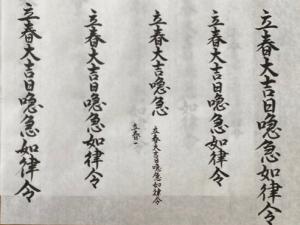 立春大吉日喼急如律令
立春大吉日喼急如律令
立春大吉日喼急
立春大吉日喼急如律令
立春一
立春大吉日喼急如律令
立春大吉日喼急如律令